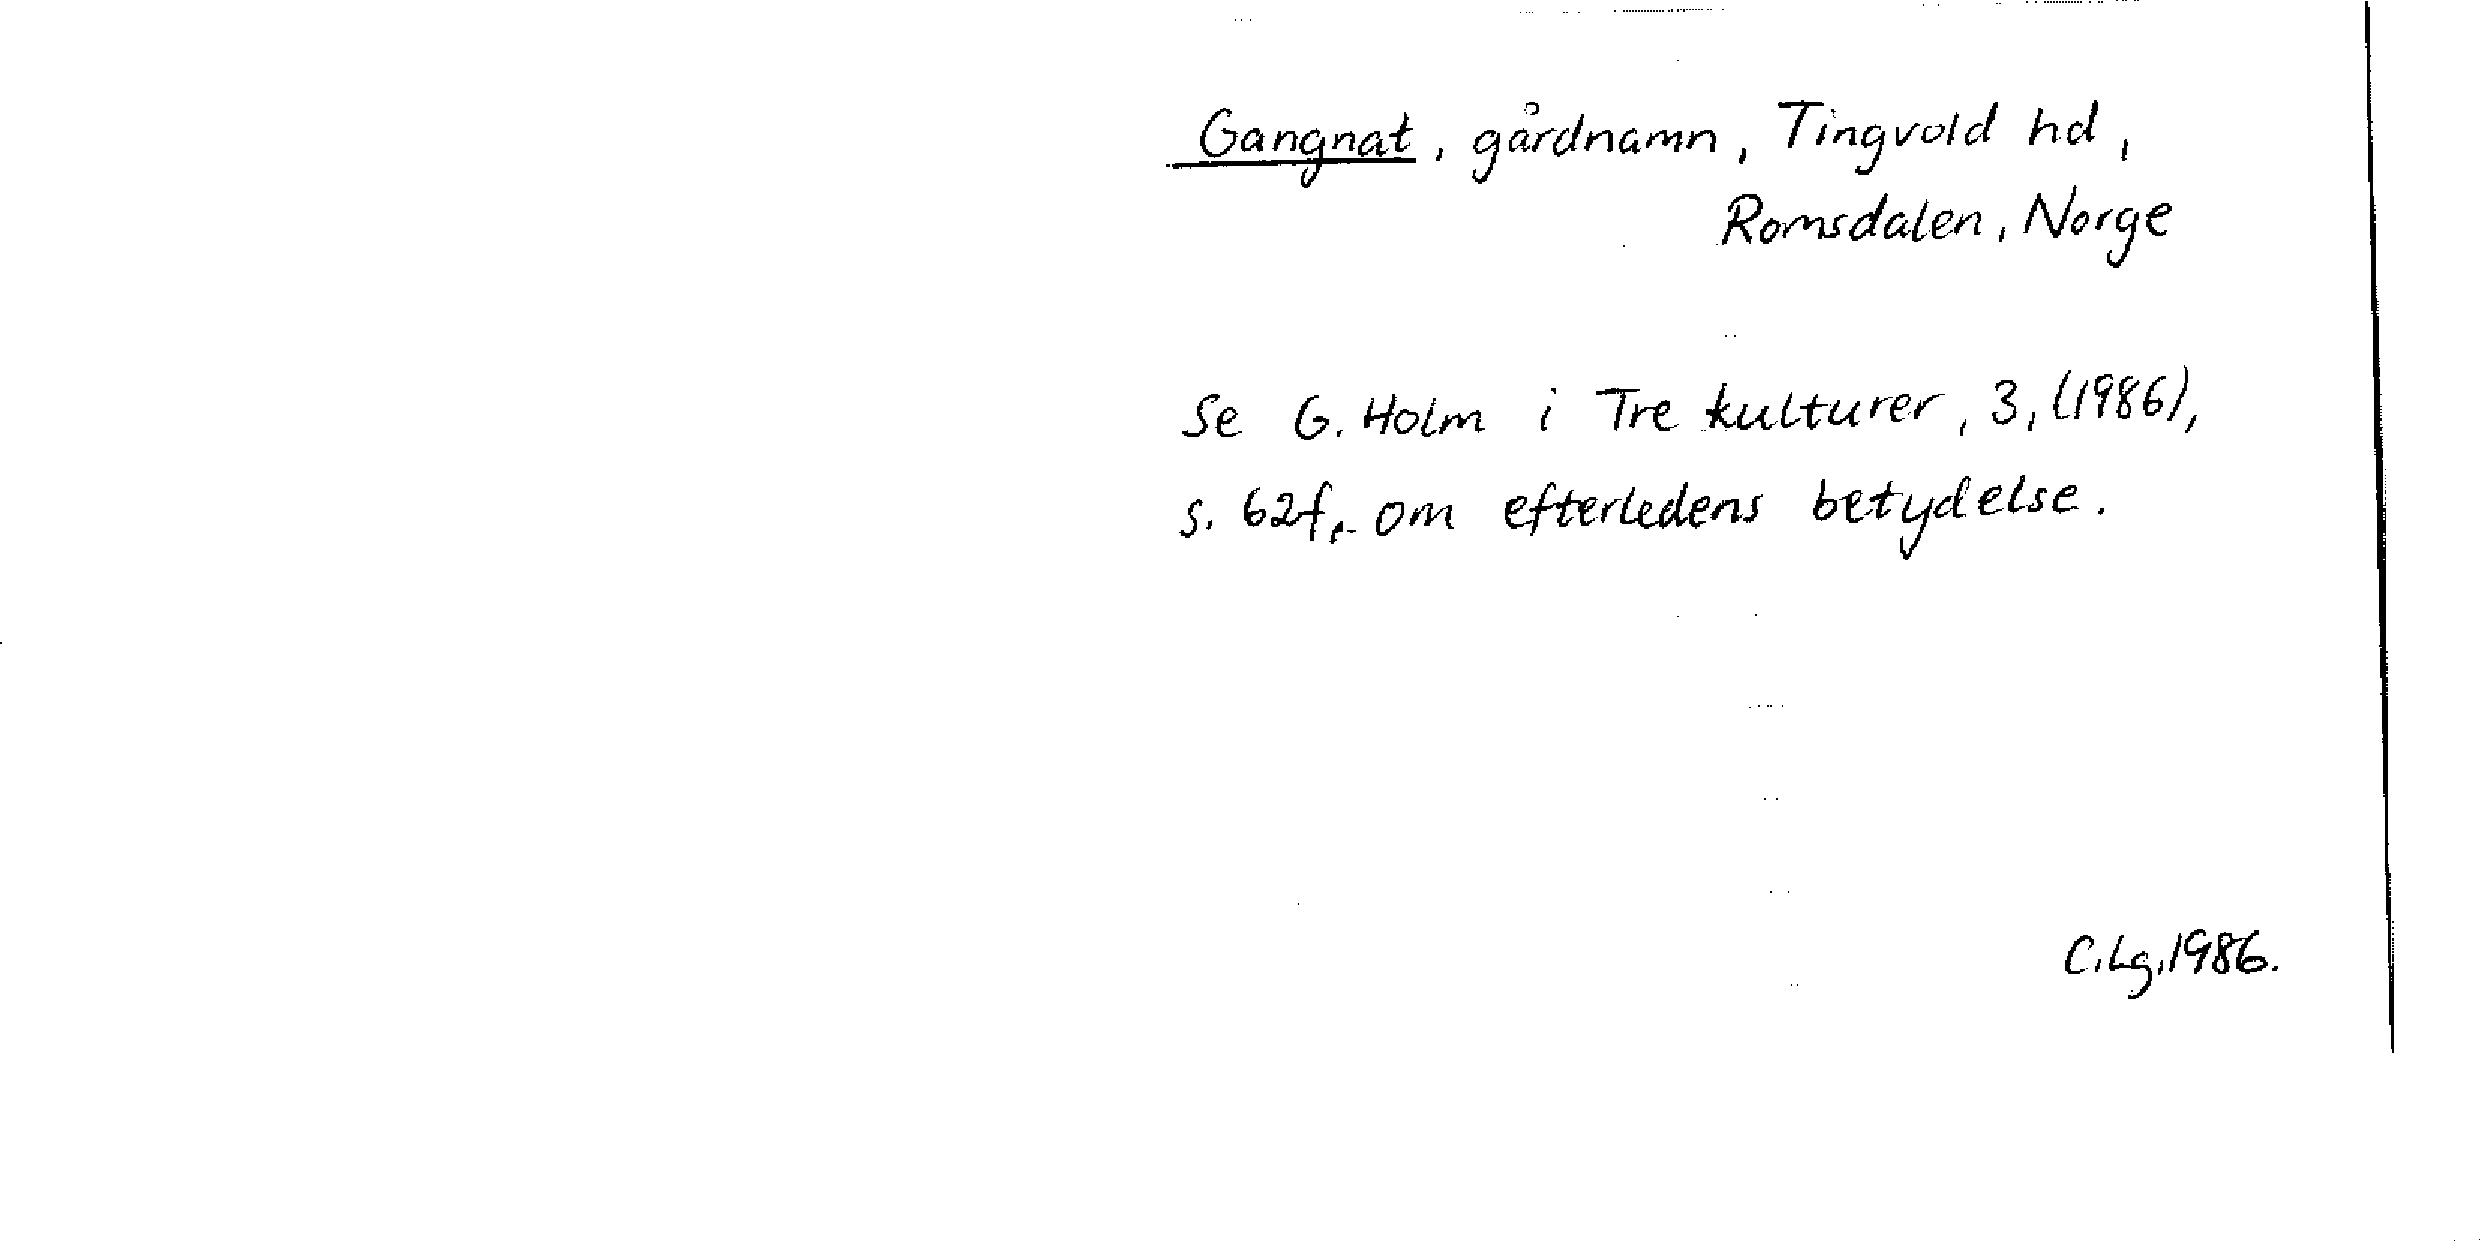 Gangnat, gårdnamn, Tingvold hd,
Romsdalen, Norge
Se G. Holm i Tre kulturer, 3, (1986),
s. 62f, om efterledens betydelse.
C.Lg.1986.